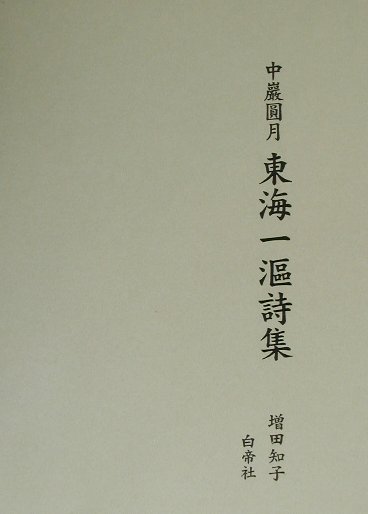 中巖圓月 東海一漚詩集
増田知子
白帝社